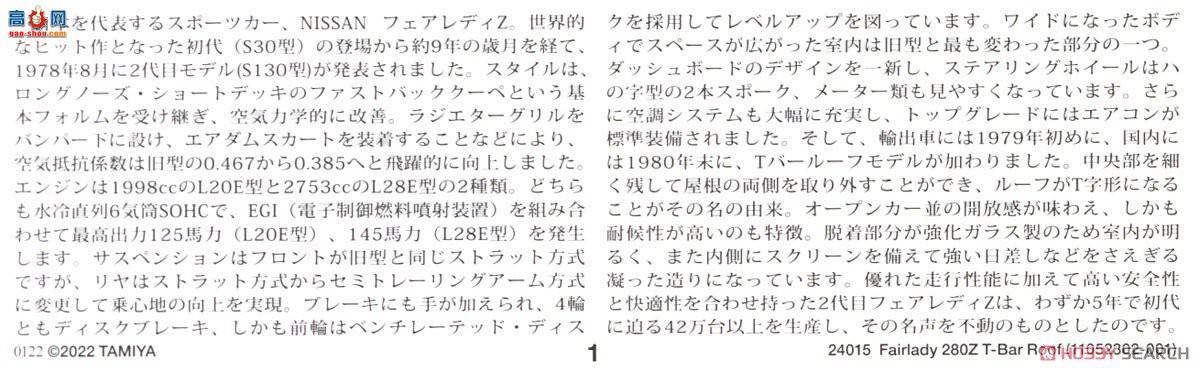 高高网
www.gaoshou.com
を代表するスポーツカー、NISSAN フェアレディZ。世界的
なヒット作となった初代（S30型）の登場から約9年の歳月を経て、
1978年8月に2代目モデル(S130型)が発表されました。スタイルは、
ロングノーズ・ショートデッキのファストバッククーペという基
本フォルムを受け継ぎ、空気力学的に改善。ラジエターグリルを
バンパー下に設け、エアダムスカートを装着することなどにより、
空気抵抗係数は旧型の0.467から0.385へと飛躍的に向上しました。
エンジンは1998ccのL20E型と2753ccのL28E型の2種類。どちら
も水冷直列6気筒SOHCで、EGI（電子制御燃料噴射装置）を組み合
わせて最高出力125馬力（L20E型）、145馬力（L28E型）を発生
します。サスペンションはフロントが旧型と同じストラット方式
ですが、リヤはストラット方式からセミトレーリングアーム方式
に変更して乗心地の向上を実現。ブレーキにも手が加えられ、4輪
ともディスクブレーキ、しかも前輪はベンチレーテッド・ディス
クを採用してレベルアップを図っています。ワイドになったボデ
ィでスペースが広がった室内は旧型と最も変わった部分の一つ。
ダッシュボードのデザインを一新し、ステアリングホイールはハ
の字型の2本スポーク、メーター類も見やすくなっています。さら
に空調システムも大幅に充実し、トップグレードにはエアコンが
標準装備されました。そして、輸出車には1979年初めに、国内に
は1980年末に、Tバールーフモデルが加わりました。中央部を細
く残して屋根の両側を取り外すことができ、ルーフがT字形になる
ことがその名の由来。オープンカー並の開放感が味わえ、しかも
耐候性が高いのも特徴。脱着部分が強化ガラス製のため室内が明
るく、また内側にスクリーンを備えて強い日差しなどをさえぎる
凝った造りになっています。優れた走行性能に加えて高い安全性
と快適性を合わせ持った2代目フェアレディZは、わずか5年で初代
に迫る42万台以上を生産し、その名声を不動のものとしたのです。
0122 ©2022 TAMIYA
1
24015 Fairlady 280Z T-Bar Roof (11052362-001)
HOBBY SEARCH